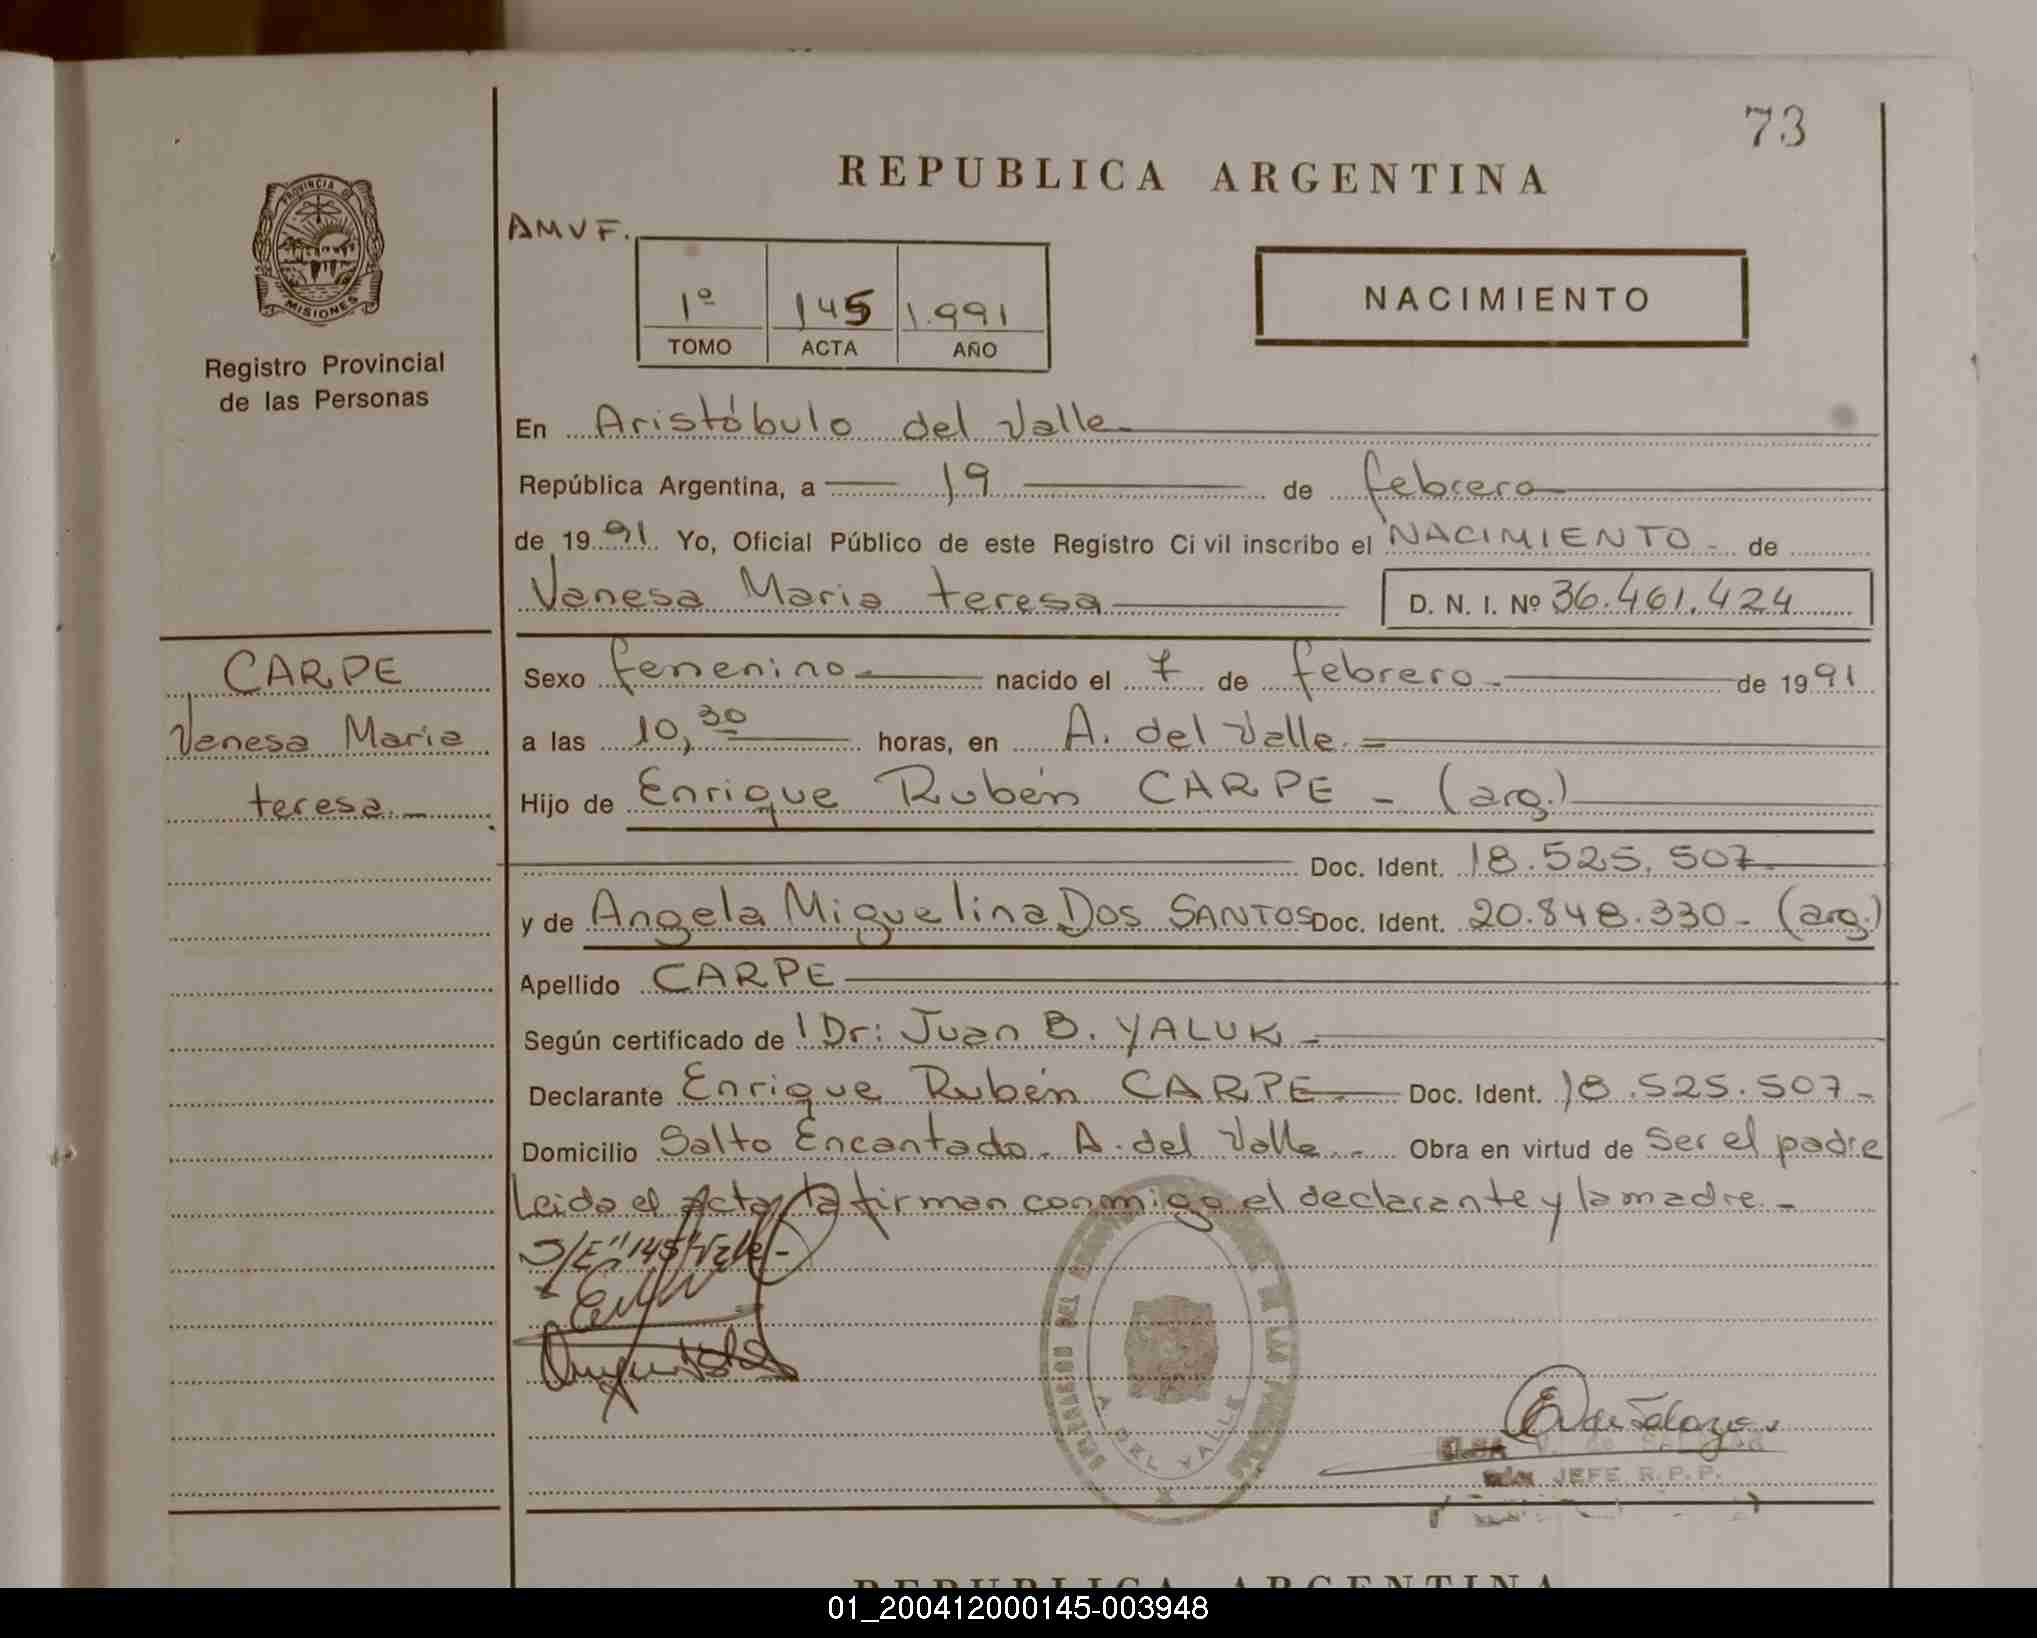 73
REPUBLICA ARGENTINA
PROVINCIA DE
MISIONES
Registro Provincial
de las Personas
AMVF.
1º 145 1.991
TOMO ACTA AÑO
NACIMIENTO
En Aristóbulo del Valle.
República Argentina, a 19 de febrero
de 1991. Yo, Oficial Público de este Registro Civil inscribo el NACIMIENTO - de
Vanesa Maria teresa D. N. I. Nº 36.461.424
CARPE
Vanesa Maria
teresa.-
Sexo femenino nacido el 7 de febrero. de 1991
a las 10,30 horas, en A. del Valle.
Hijo de Enrique Rubén CARPE - (arg.)
Doc. Ident. 18.525.507.
y de Angela Miguelina Dos SANTOS Doc. Ident. 20.848.330- (arg.)
Apellido CARPE
Según certificado de Dr: Juan B. YALUK
Declarante Enrique Rubén CARPE Doc. Ident. 18.525.507-
Domicilio Salto Encantado. A. del Valle. Obra en virtud de ser el padre
Leida el Acta, la firman conmigo el declarante y la madre.-
S/E "145" Vale-
DEL LAS
A. DEL VALLE
JEFE R.P.P.
REPUBLICA ARGENTINA
01_200412000145-003948